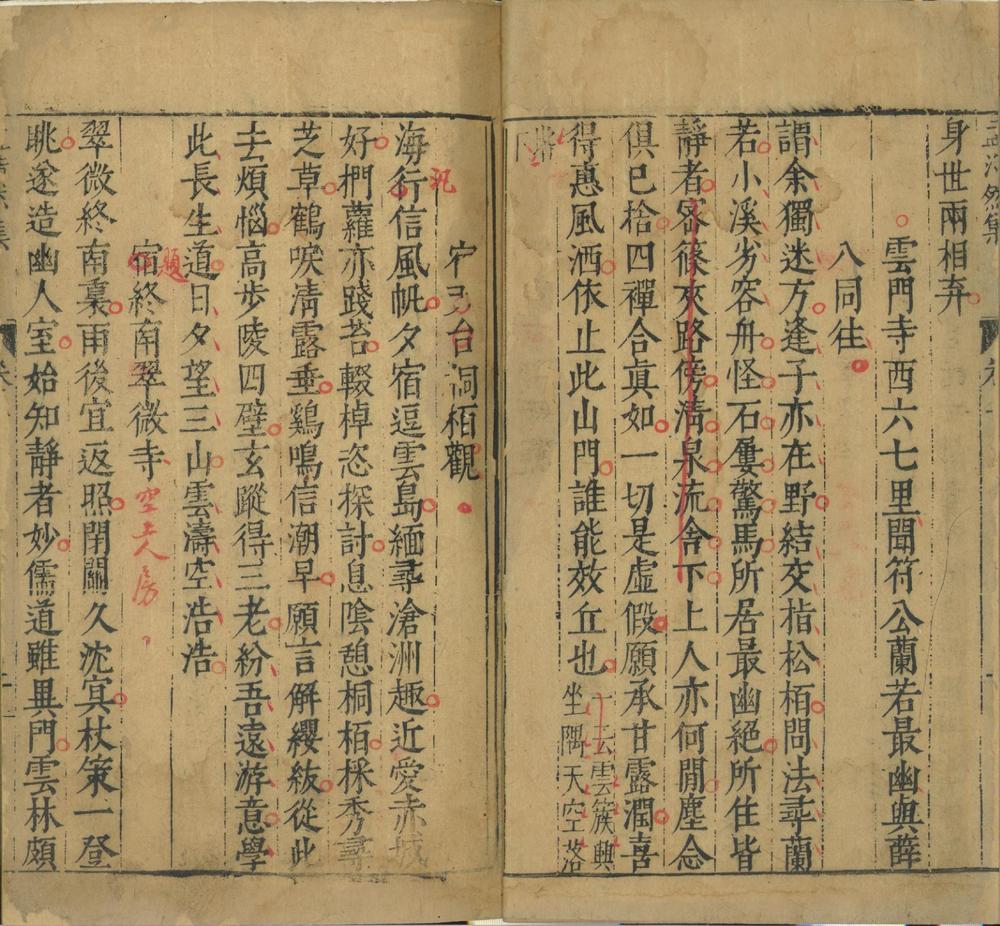 孟浩然集
卷一
身世兩相弃
雲門寺西六七里聞符公蘭若最幽與薛
八同往
謂余獨迷方逢子亦在野結交指松栢問法尋蘭
若小溪劣容舟怪石屢驚馬所居最幽絕所住皆
靜者宻篠夾路傍清泉流舍下上人亦何閒塵念
俱已捨四禪合真如一切是虛假願承甘露潤喜
得惠風洒依止此山門誰能效丘也一云雲簇興
坐隅天空落
階下
宿天台桐栢觀
海行信風帆夕宿逗雲島緬尋滄洲趣近愛赤城
汎
好捫蘿亦踐苔輟棹恣探討息陰憩桐栢採秀尋
芝草鶴唳清露垂鷄鳴信潮早願言解纓紱從此
去煩惱高步陵四壁玄蹤得三老紛吾遠游意學
此長生道日夕望三山雲濤空浩浩
宿終南翠微寺
題
空上人房
翠微終南裏雨後宜返照閉關久沈冥杖策一登
眺遂造幽人室始知靜者妙儒道雖異門雲林頗